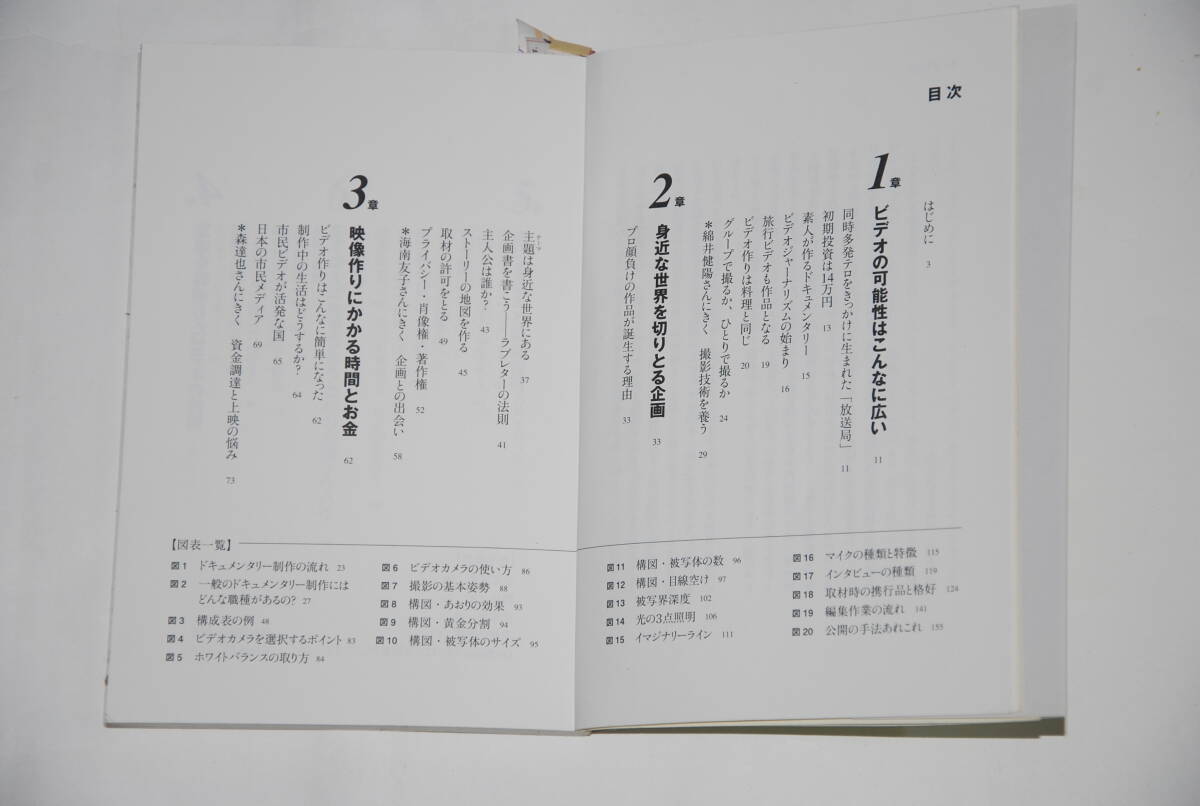 目次
はじめに 3
1章 ビデオの可能性はこんなに広い 11
同時多発テロをきっかけに生まれた「放送局」 11
初期投資は14万円 13
素人が作るドキュメンタリー 15
ビデオジャーナリズムの始まり 16
旅行ビデオも作品となる 19
ビデオ作りは料理と同じ 20
グループで撮るか、ひとりで撮るか 24
*綿井健陽さんにきく 撮影技術を養う 29
2章 身近な世界を切りとる企画 33
プロ顔負けの作品が誕生する理由 33
主題は身近な世界にある 37
テーマ
企画書を書こう——ラブレターの法則 41
主人公は誰か? 43
ストーリーの地図を作る 45
取材の許可をとる 49
プライバシー・肖像権・著作権 52
*海南友子さんにきく 企画との出会い 58
3章 映像作りにかかる時間とお金 62
ビデオ作りはこんなに簡単になった 62
制作中の生活はどうするか? 64
市民ビデオが活発な国 65
日本の市民メディア 69
*森達也さんにきく 資金調達と上映の悩み 73
【図表一覧】
図1 ドキュメンタリー制作の流れ 23
図2 一般のドキュメンタリー制作には
どんな職種があるの? 27
図3 構成表の例 48
図4 ビデオカメラを選択するポイント 83
図5 ホワイトバランスの取り方 84
図6 ビデオカメラの使い方 86
図7 撮影の基本姿勢 88
図8 構図・あおりの効果 93
図9 構図・黄金分割 94
図10 構図・被写体のサイズ 95
図11 構図・被写体の数 96
図12 構図・目線空け 97
図13 被写界深度 102
図14 光の3点照明 106
図15 イマジナリーライン 111
図16 マイクの種類と特徴 115
図17 インタビューの種類 119
図18 取材時の携行品と格好 124
図19 編集作業の流れ 141
図20 公開の手法あれこれ 155